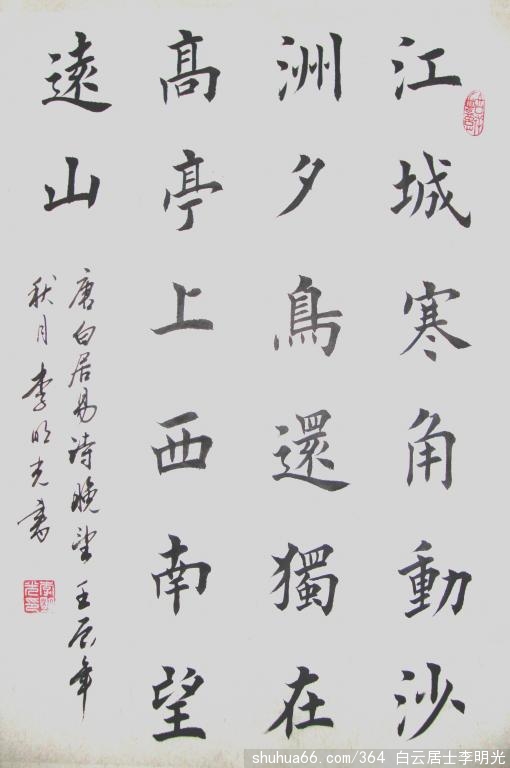 江城寒角動沙
洲夕鳥還獨在
高亭上西南望
遠山
唐白居易詩晚望 壬辰年
秋月 李明光書
shuhua66.com/364 白云居士李明光